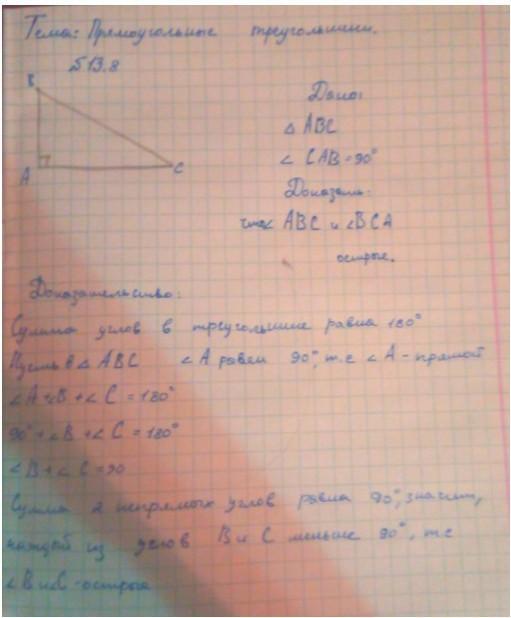 Тема: Прямоугольные треугольники.
№13.8
B
A
C
Дано:
△ ABC
∠ CAB = 90°
Доказать:
что∠ ABC и ∠BCA
острые.
Доказательство:
Сумма углов в треугольнике равна 180°
Пусть в △ ABC ∠A равен 90°, т.е ∠A - прямой
∠A+∠B+∠C = 180°
90°+∠B+∠C = 180°
∠B+∠C = 90
Сумма 2 непрямых углов равна 90°, значит,
каждый из углов B и C меньше 90°, т.е
∠B и∠C -острые